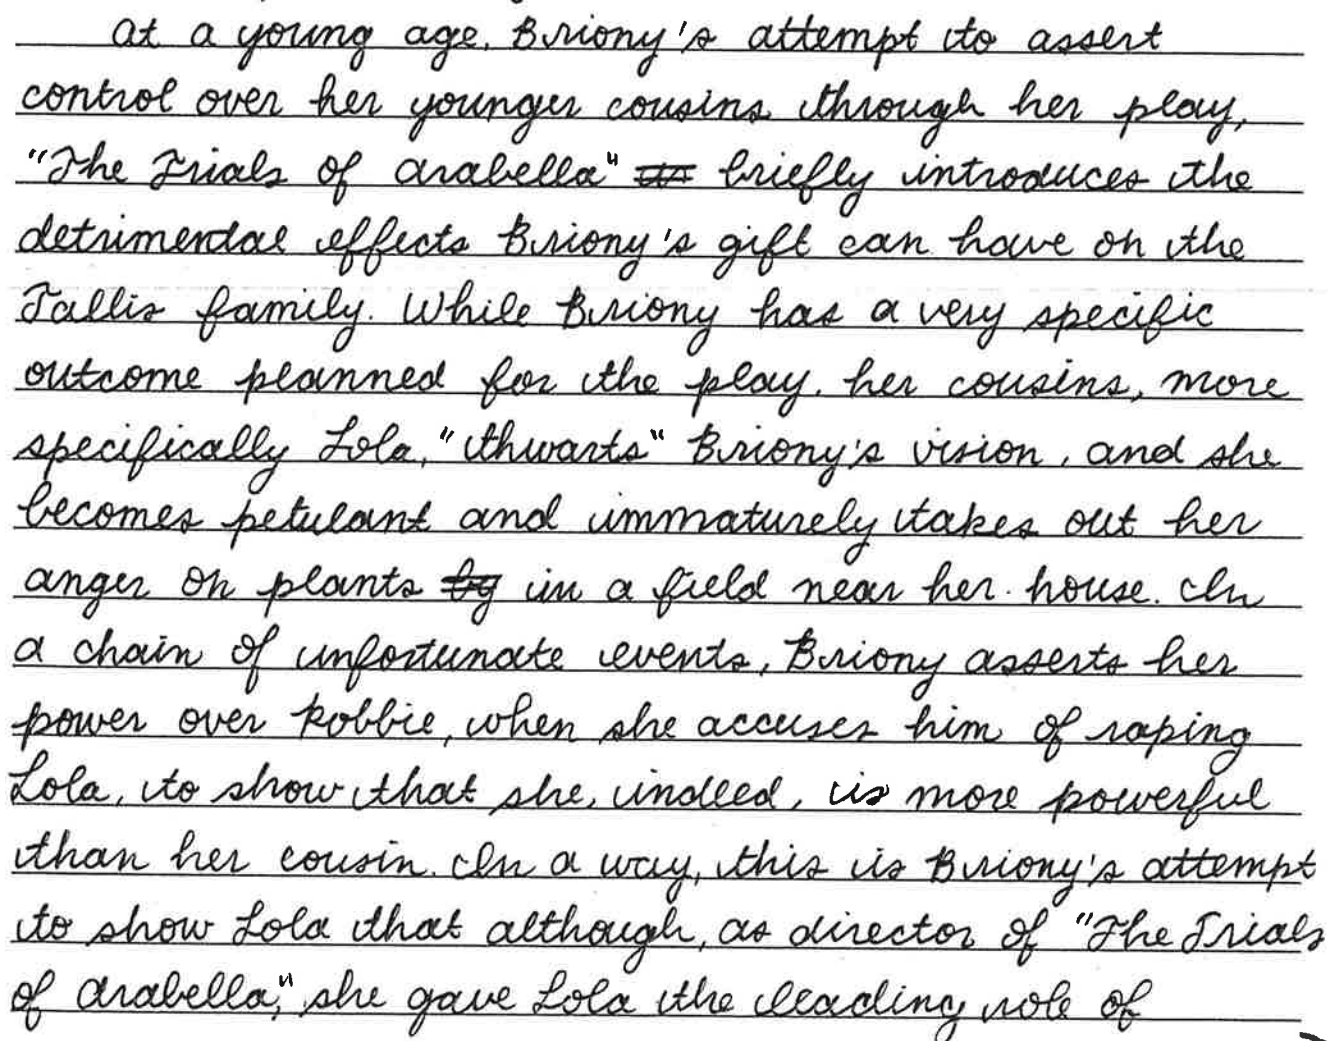 At a young age, Briony's attempt to assert
control over her younger cousins through her play,
"The Trials of Arabella" briefly introduces the
detrimental effects Briony's gift can have on the
Tallis family. While Briony has a very specific
outcome planned for the play, her cousins, more
specifically Lola, "thwarts" Briony's vision, and she
becomes petulant and immaturely takes out her
anger on plants by in a field near her house. In
a chain of unfortunate events, Briony asserts her
power over Robbie, when she accuses him of raping
Lola, to show that she, indeed, is more powerful
than her cousin. In a way, this is Briony's attempt
to show Lola that although, as director of "The Trials
of Arabella," she gave Lola the leading role of